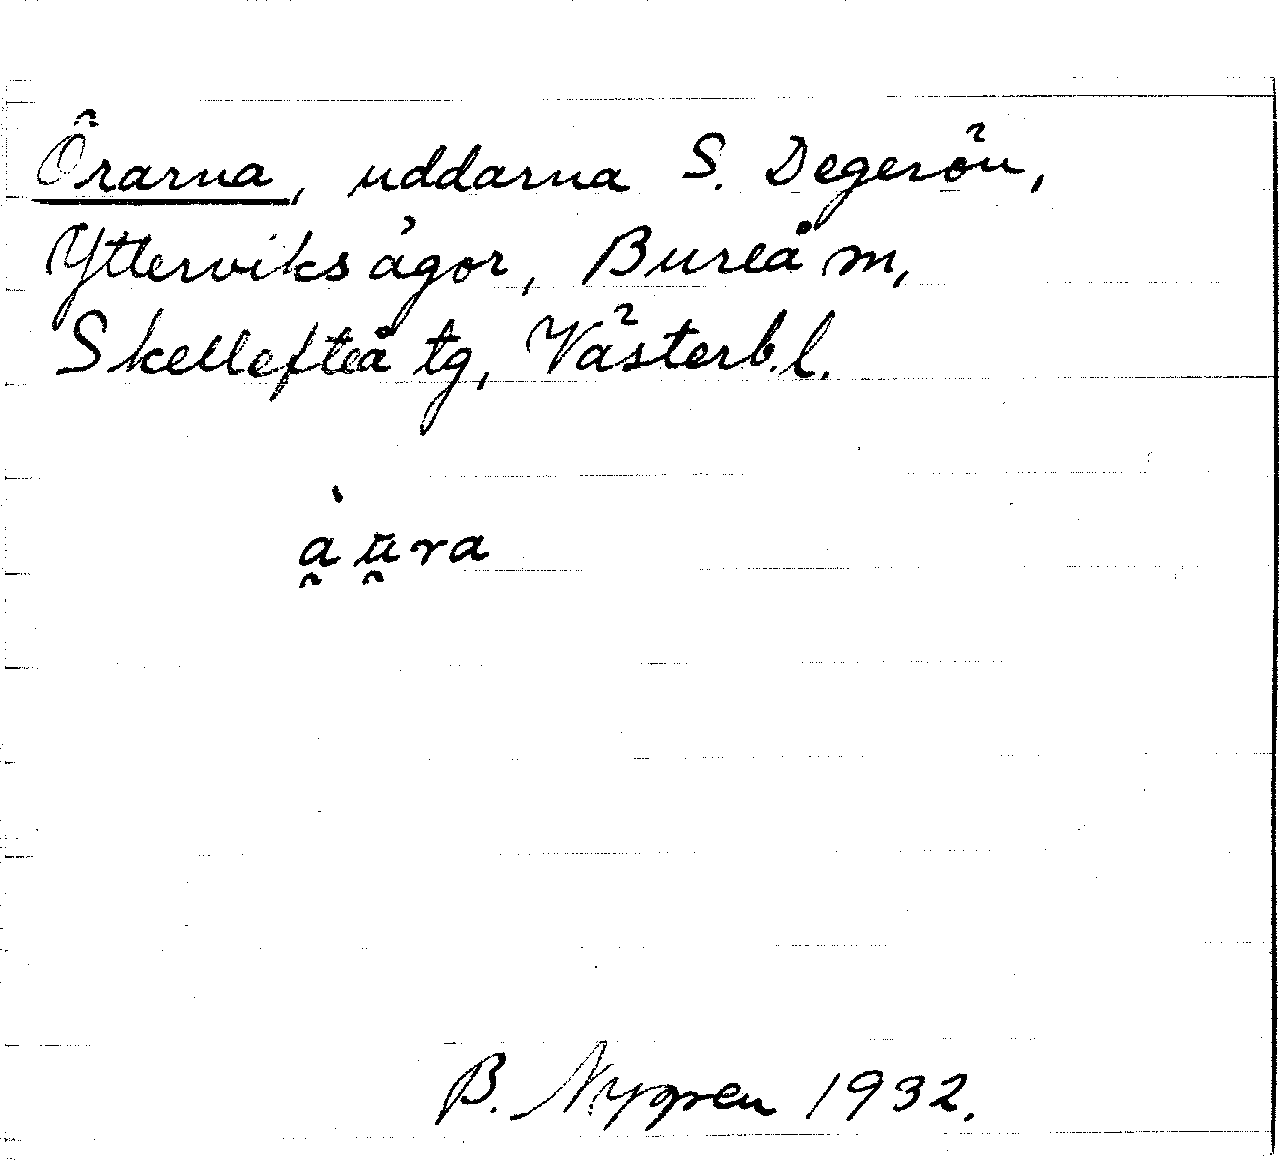 Örarna, uddarna S. Degerön,
Ytterviks ägor, Bureå m,
Skellefteå tg, Västerb.l.
B. Nygren 1932.